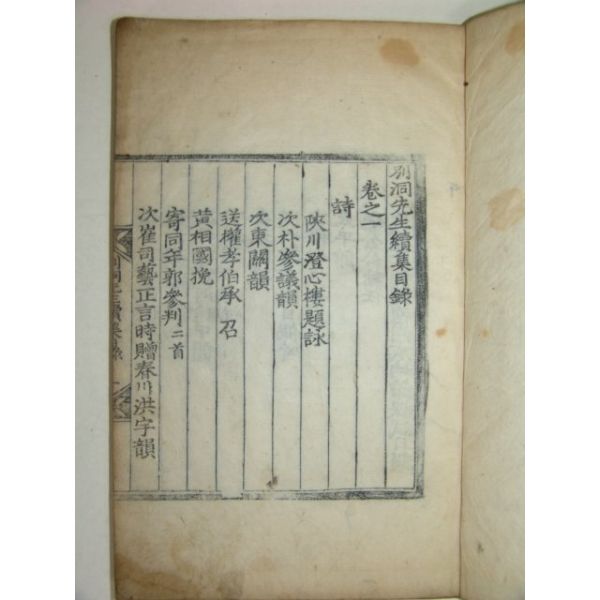 別洞先生續集目錄
卷之一
詩
陜川澄心樓題詠
次朴參議韻
次東關韻
送權孝伯承 召
黃相國挽
寄同年郭參判二首
次崔司藝正言時贈春川洪字韻